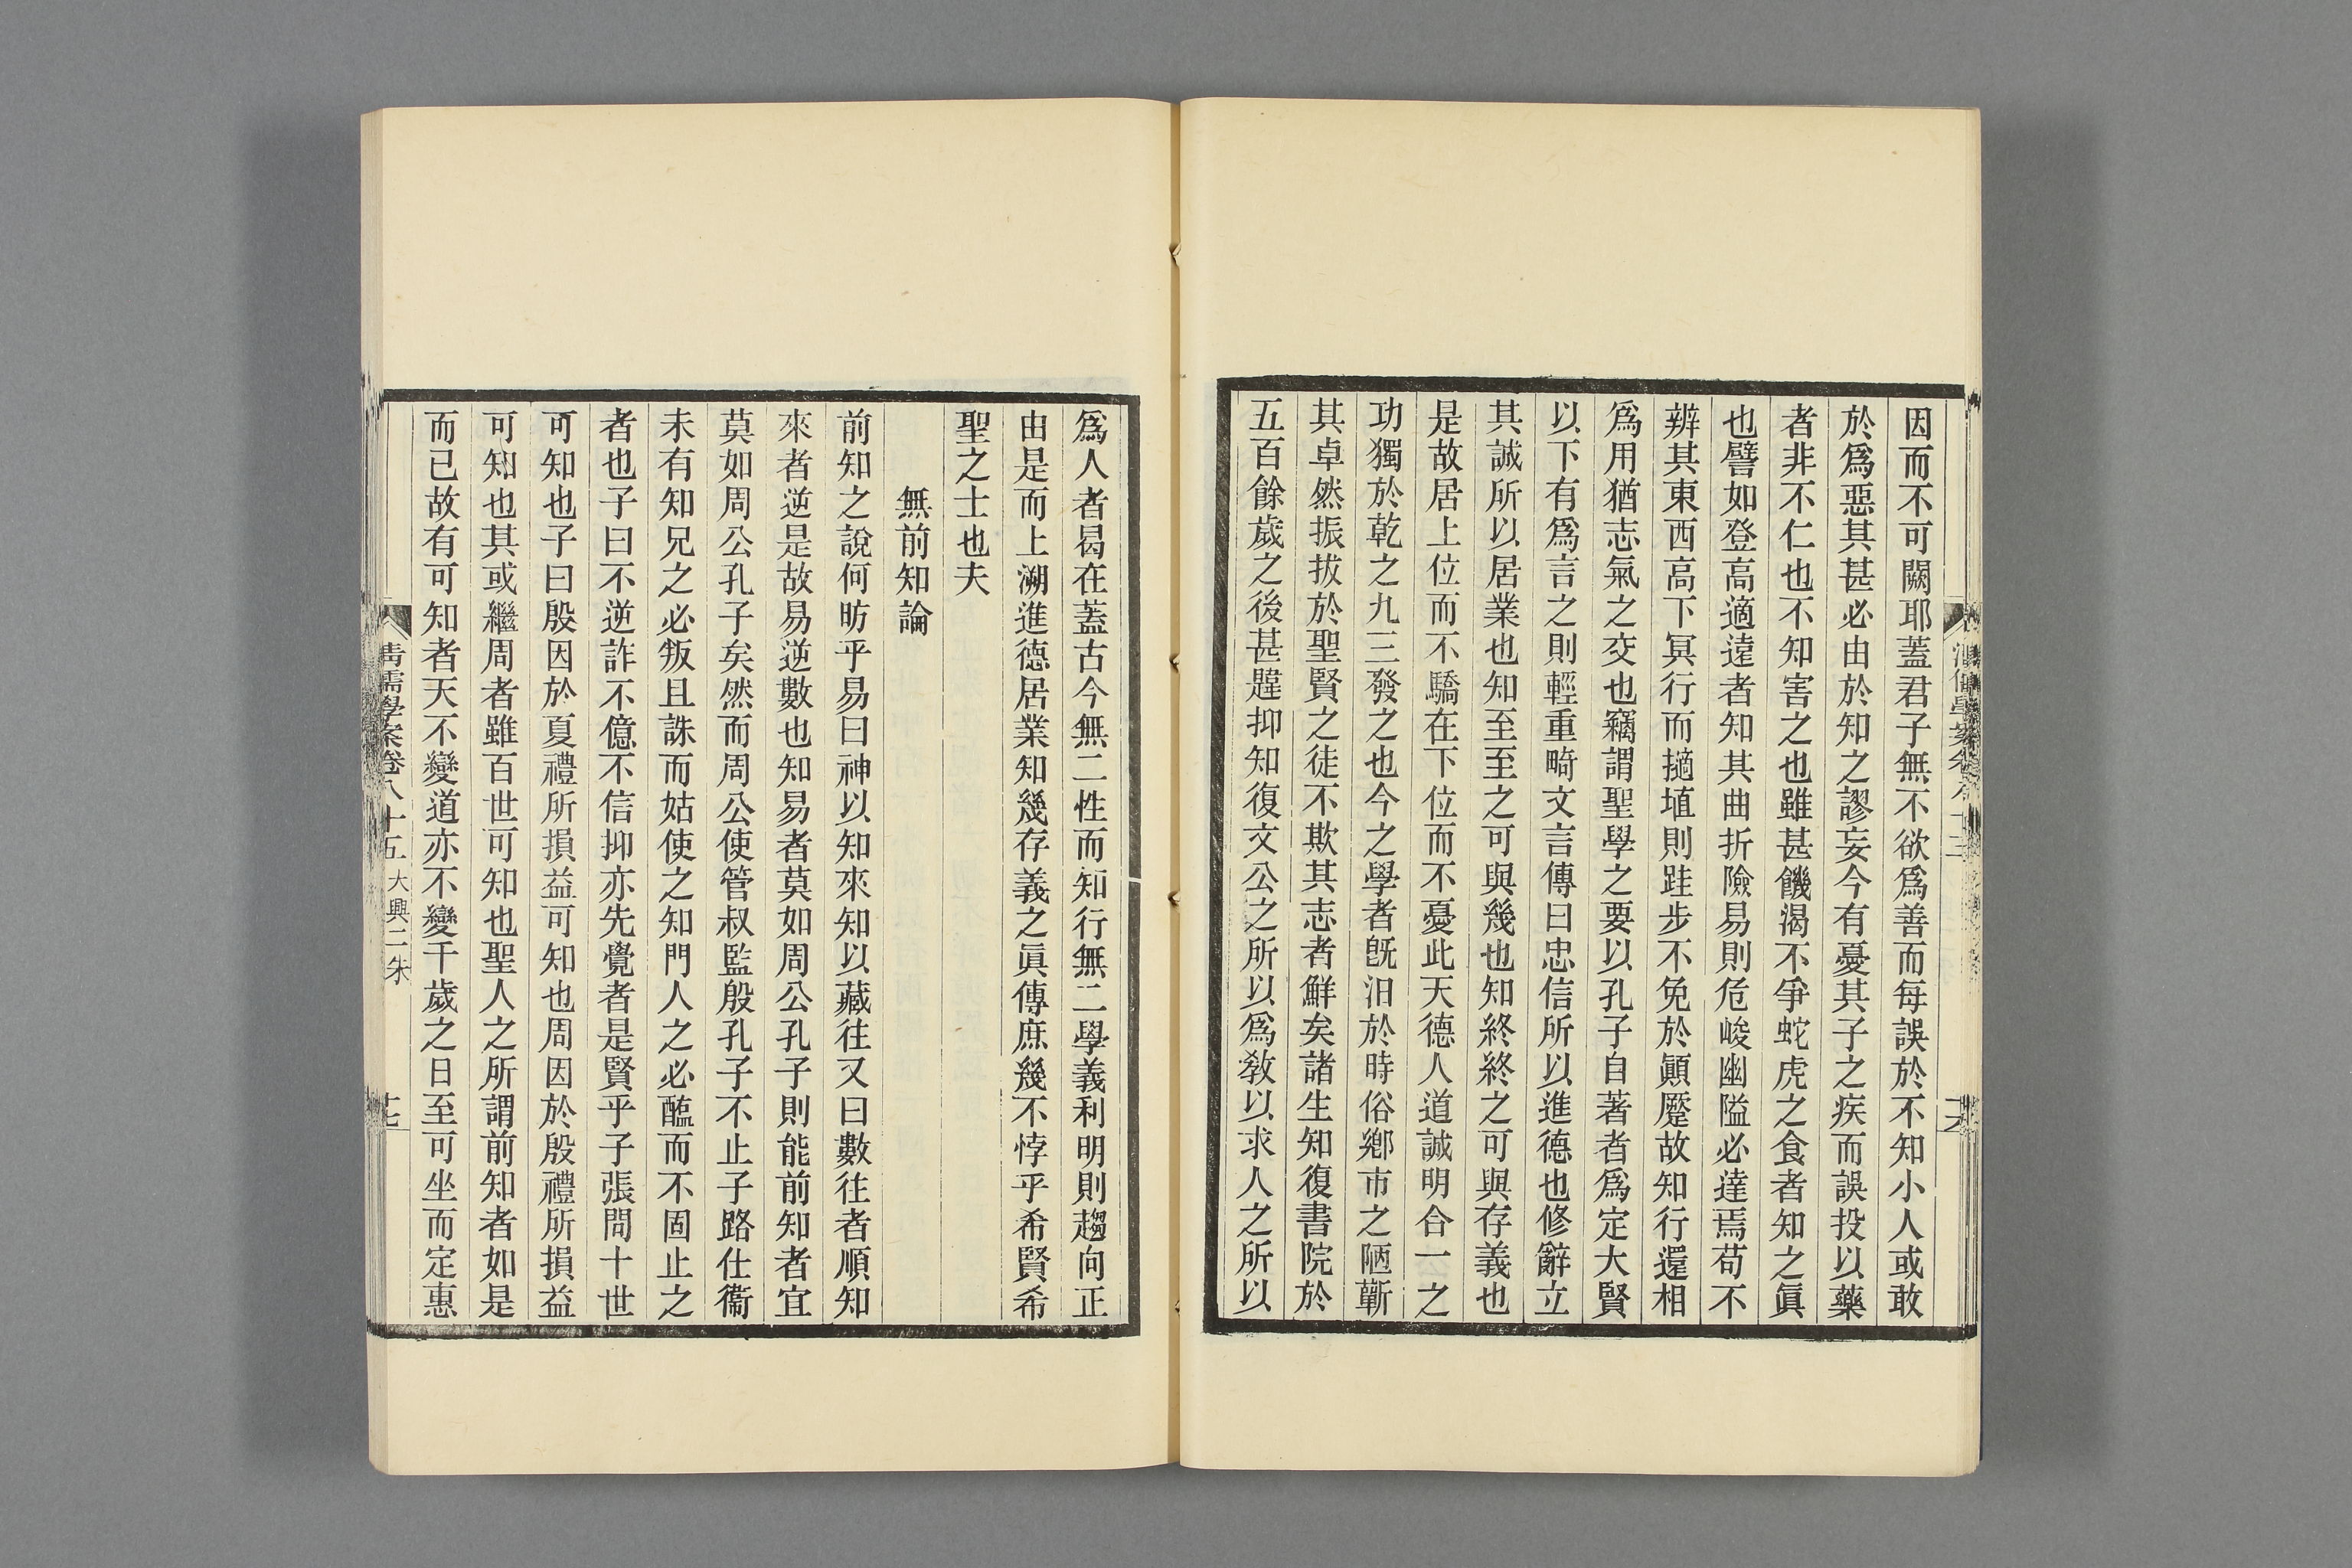 因而不可闕耶蓋君子無不欲爲善而每誤於不知小人或敢
於爲惡其甚必由於知之謬妄今有憂其子之疾而誤投以藥
者非不仁也不知害之也雖甚饑渴不爭蛇虎之食者知之眞
也譬如登高適遠者知其曲折險易則危峻幽隘必達焉苟不
辨其東西高下冥行而擿埴則跬步不免於顚蹷故知行還相
爲用猶志氣之交也竊謂聖學之要以孔子自著者爲定大賢
以下有爲言之則輕重畸文言傳曰忠信所以進德也修辭立
其誠所以居業也知至至之可與幾也知終終之可與存義也
是故居上位而不驕在下位而不憂此天德人道誠明合一之
功獨於乾之九三發之也今之學者旣汨於時俗鄕市之陋蘄
其卓然振拔於聖賢之徒不欺其志者鮮矣諸生知復書院於
五百餘歲之後甚韙抑知復文公之所以爲敎以求人之所以
爲人者曷在蓋古今無二性而知行無二學義利明則趨向正
由是而上溯進德居業知幾存義之眞傳庶幾不悖乎希賢希
聖之士也夫
無前知論
前知之說何昉乎易曰神以知來知以藏往又曰數往者順知
來者逆是故易逆數也知易者莫如周公孔子則能前知者宜
莫如周公孔子矣然而周公使管叔監殷孔子不止子路仕衞
未有知兄之必叛且誅而姑使之知門人之必醢而不固止之
者也子曰不逆詐不億不信抑亦先覺者是賢乎子張問十世
可知也子曰殷因於夏禮所損益可知也周因於殷禮所損益
可知也其或繼周者雖百世可知也聖人之所謂前知者如是
而已故有可知者天不變道亦不變千歲之日至可坐而定惠
清儒學案卷八十五 大興二朱 十七